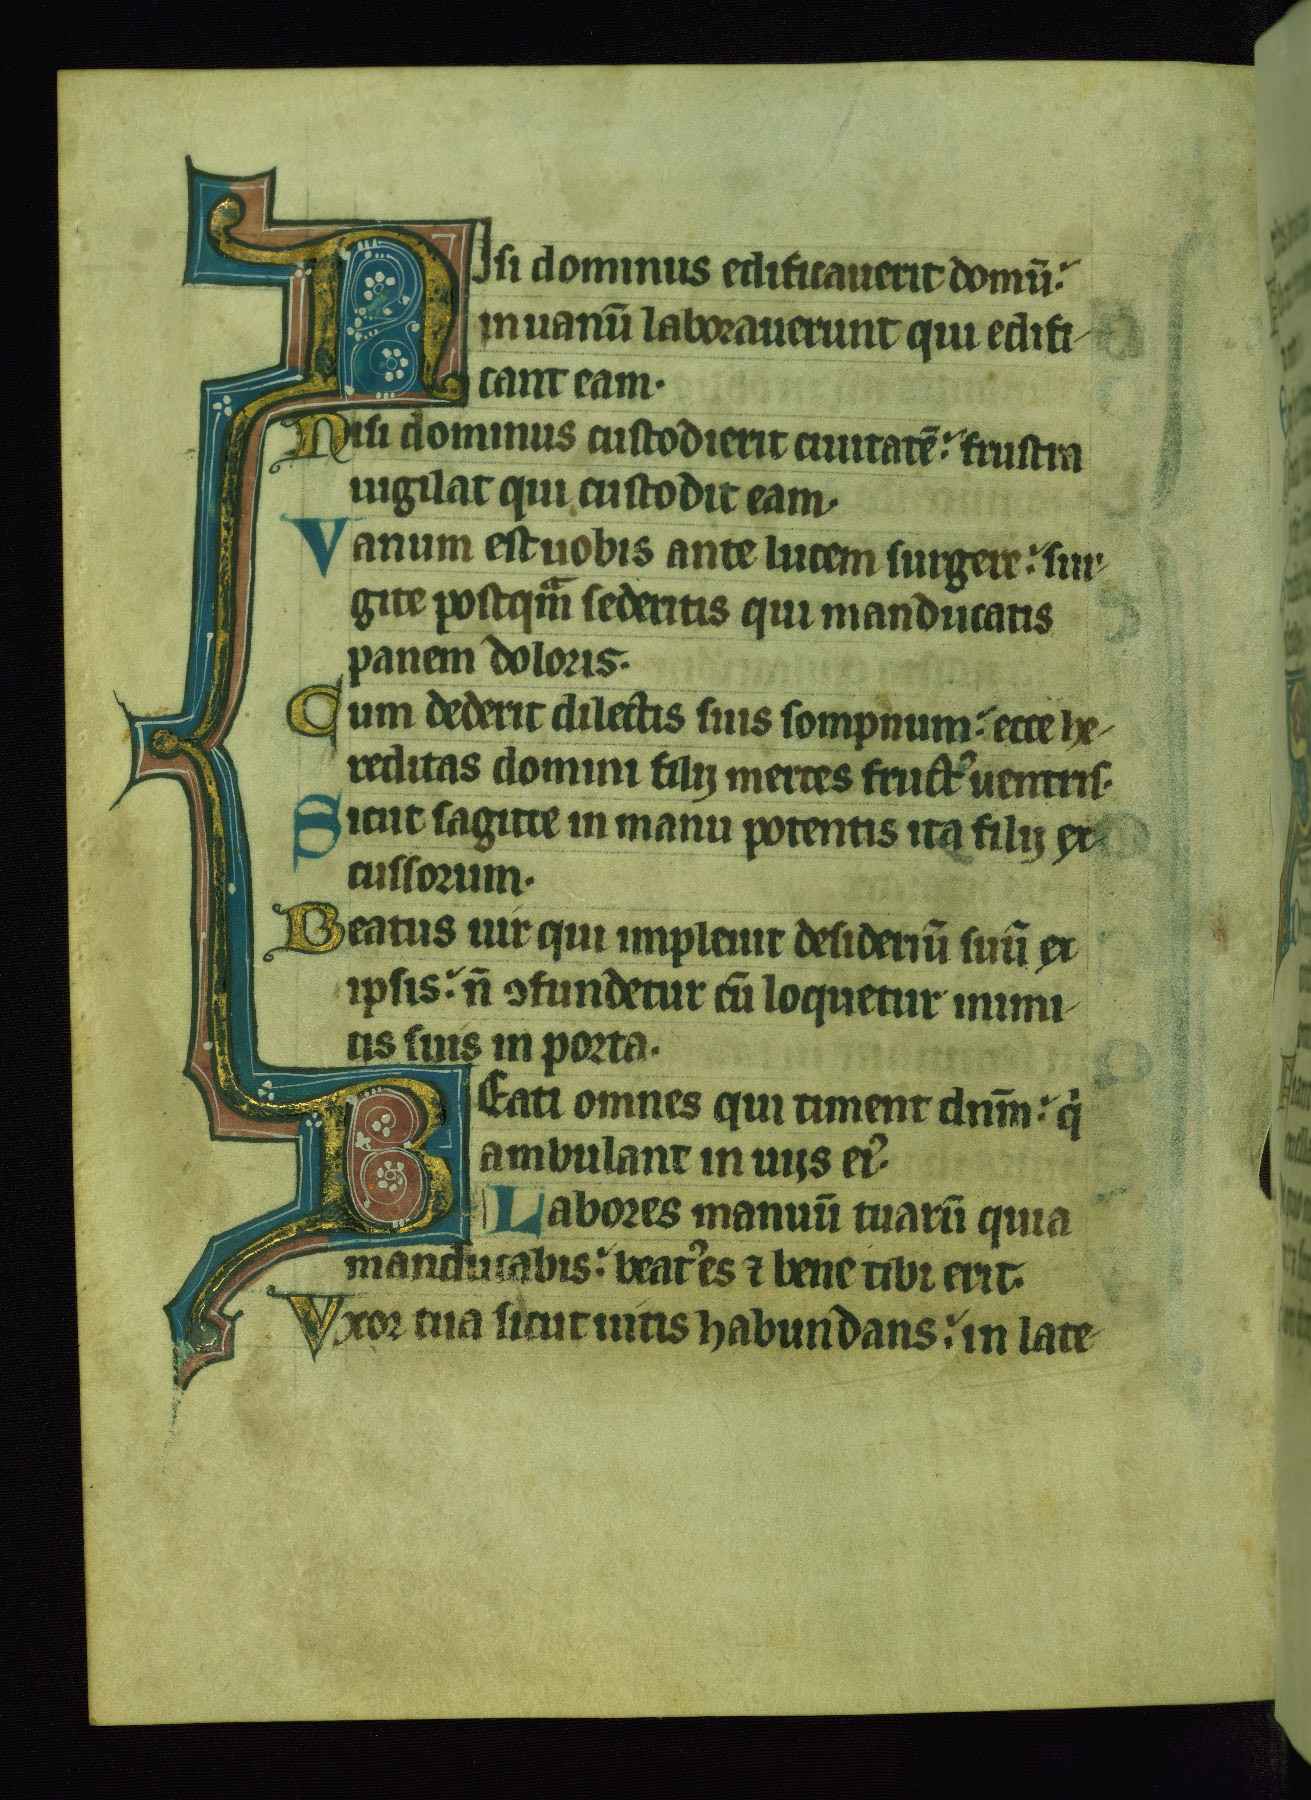 NIsi dominus edificauerit domū:
in uanū laborauerunt qui edifi-
cant eam.
Nisi dominus custodierit ciuitatē: frustra
uigilat qui custodit eam.
Vanum est uobis ante lucem surgere: sur-
gite postqm̄ sederitis qui manducatis
panem doloris.
Cum dederit dilectis suis sompnum: ecce he-
reditas domini filij merces fruct᾿ uentris.
Sicut sagitte in manu potentis ita filij ex-
cussorum.
Beatus uir qui impleuit desideriū suū ex
ipsis: n̄ ↄfundetur cū loquetur inimi-
cis suis in porta.
BEati omnes qui timent dnm̄: q̇
ambulant in uijs ei᾿.
Labores manuū tuarū quia
manducabis: beat᾿ es ⁊ bene tibi erit.
Vxor tua sicut uitis habundans: in late-